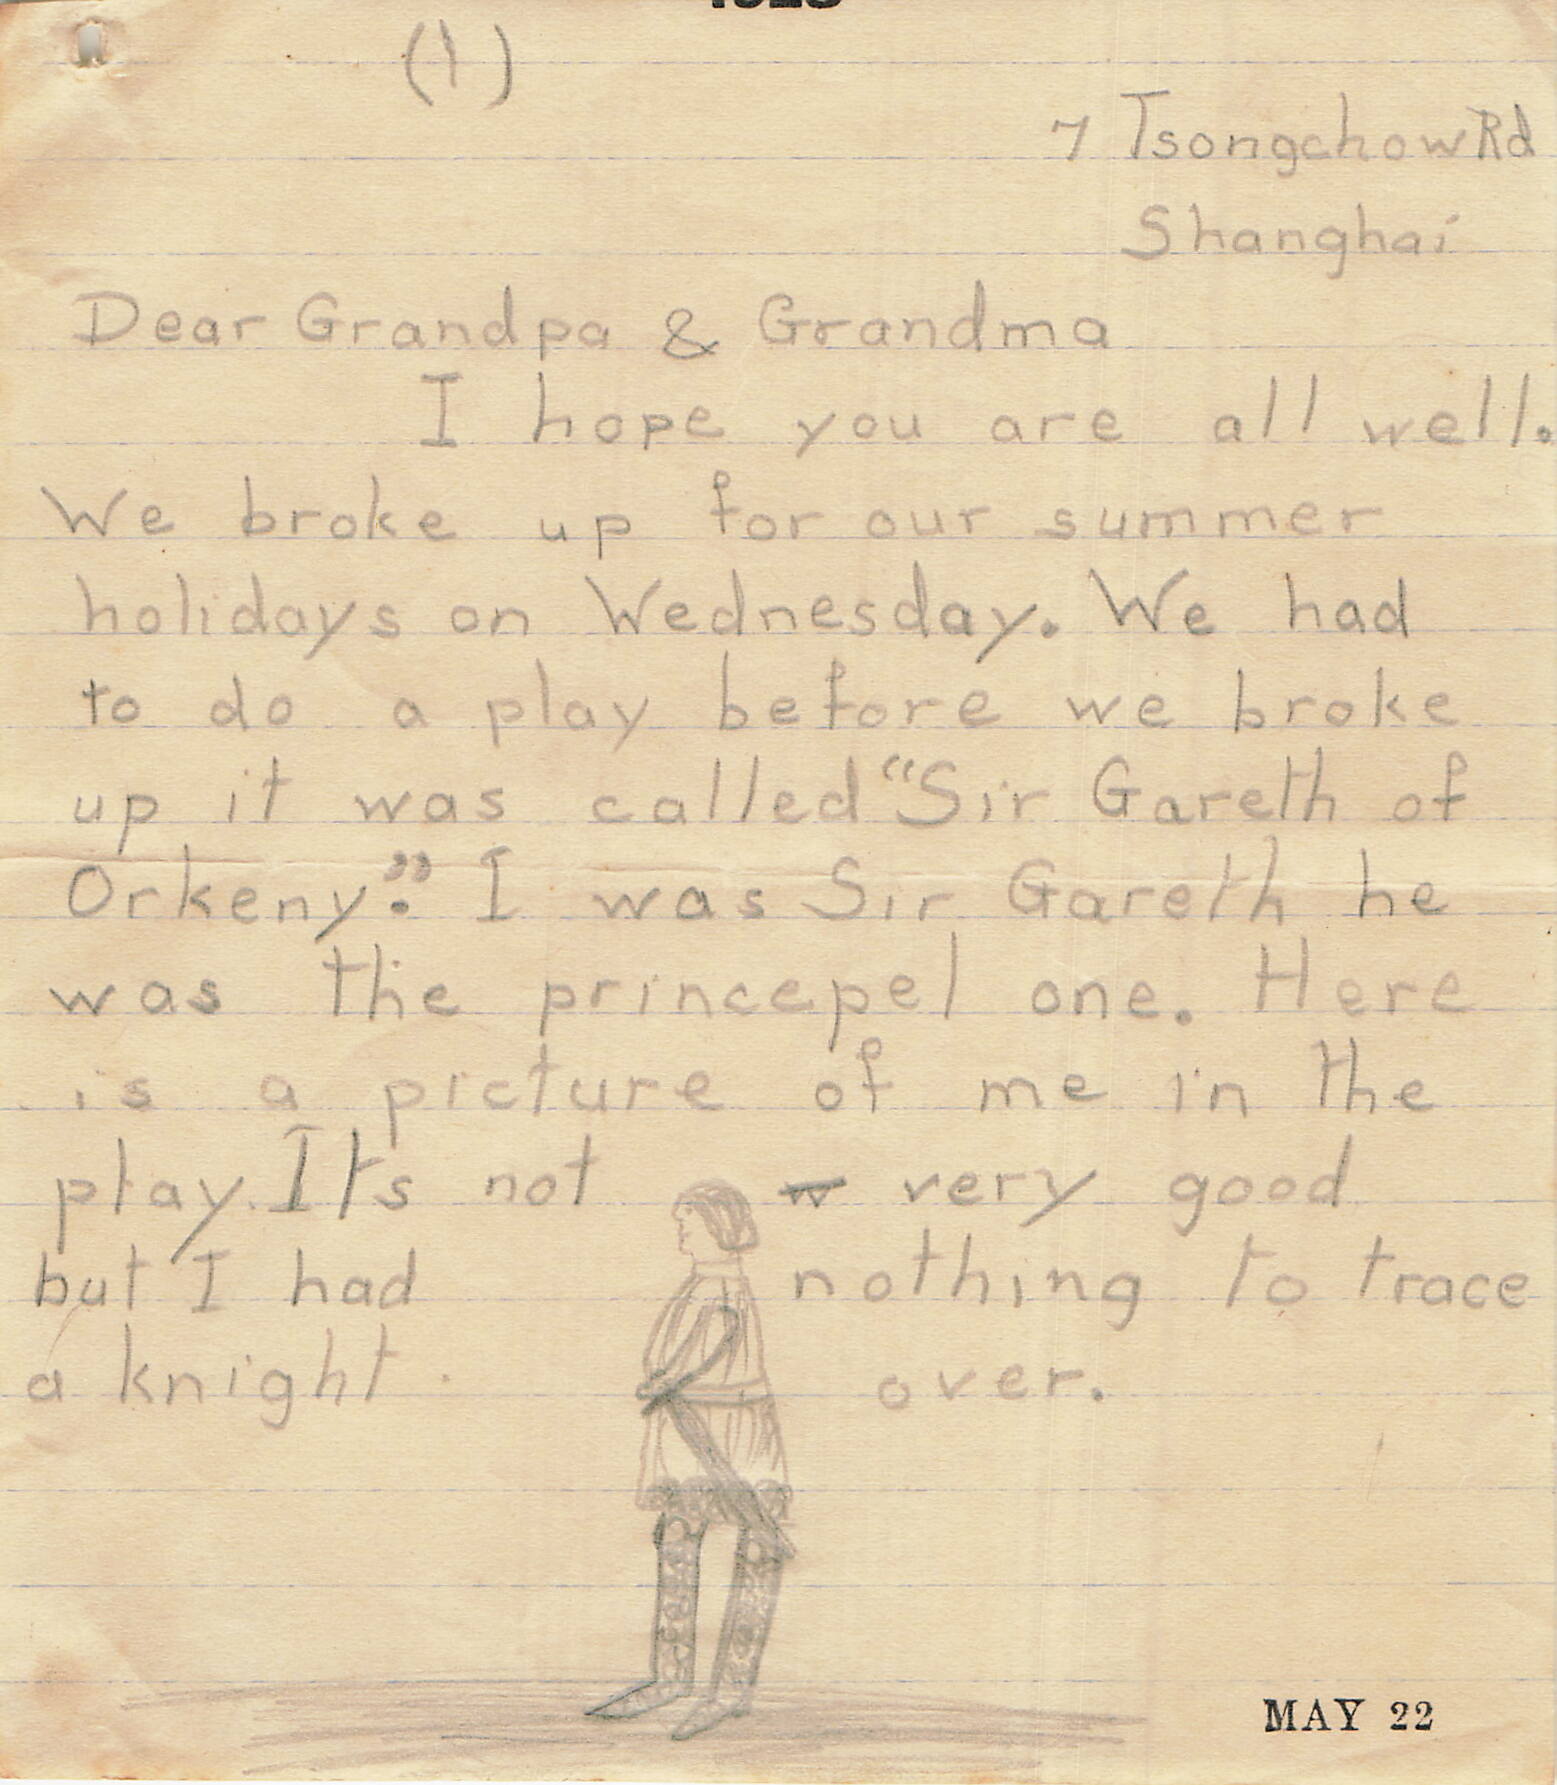 (1)
7 Tsongchow Rd
Shanghai
Dear Grandpa & Grandma
I hope you are all well.
We broke up for our summer
holidays on Wednesday. We had
to do a play before we broke
up it was called "Sir Gareth of
Orkeny." I was Sir Gareth he
was the princepel one. Here
is a picture of me in the
play. Its not very good
but I had nothing to trace
a knight over.
MAY 22